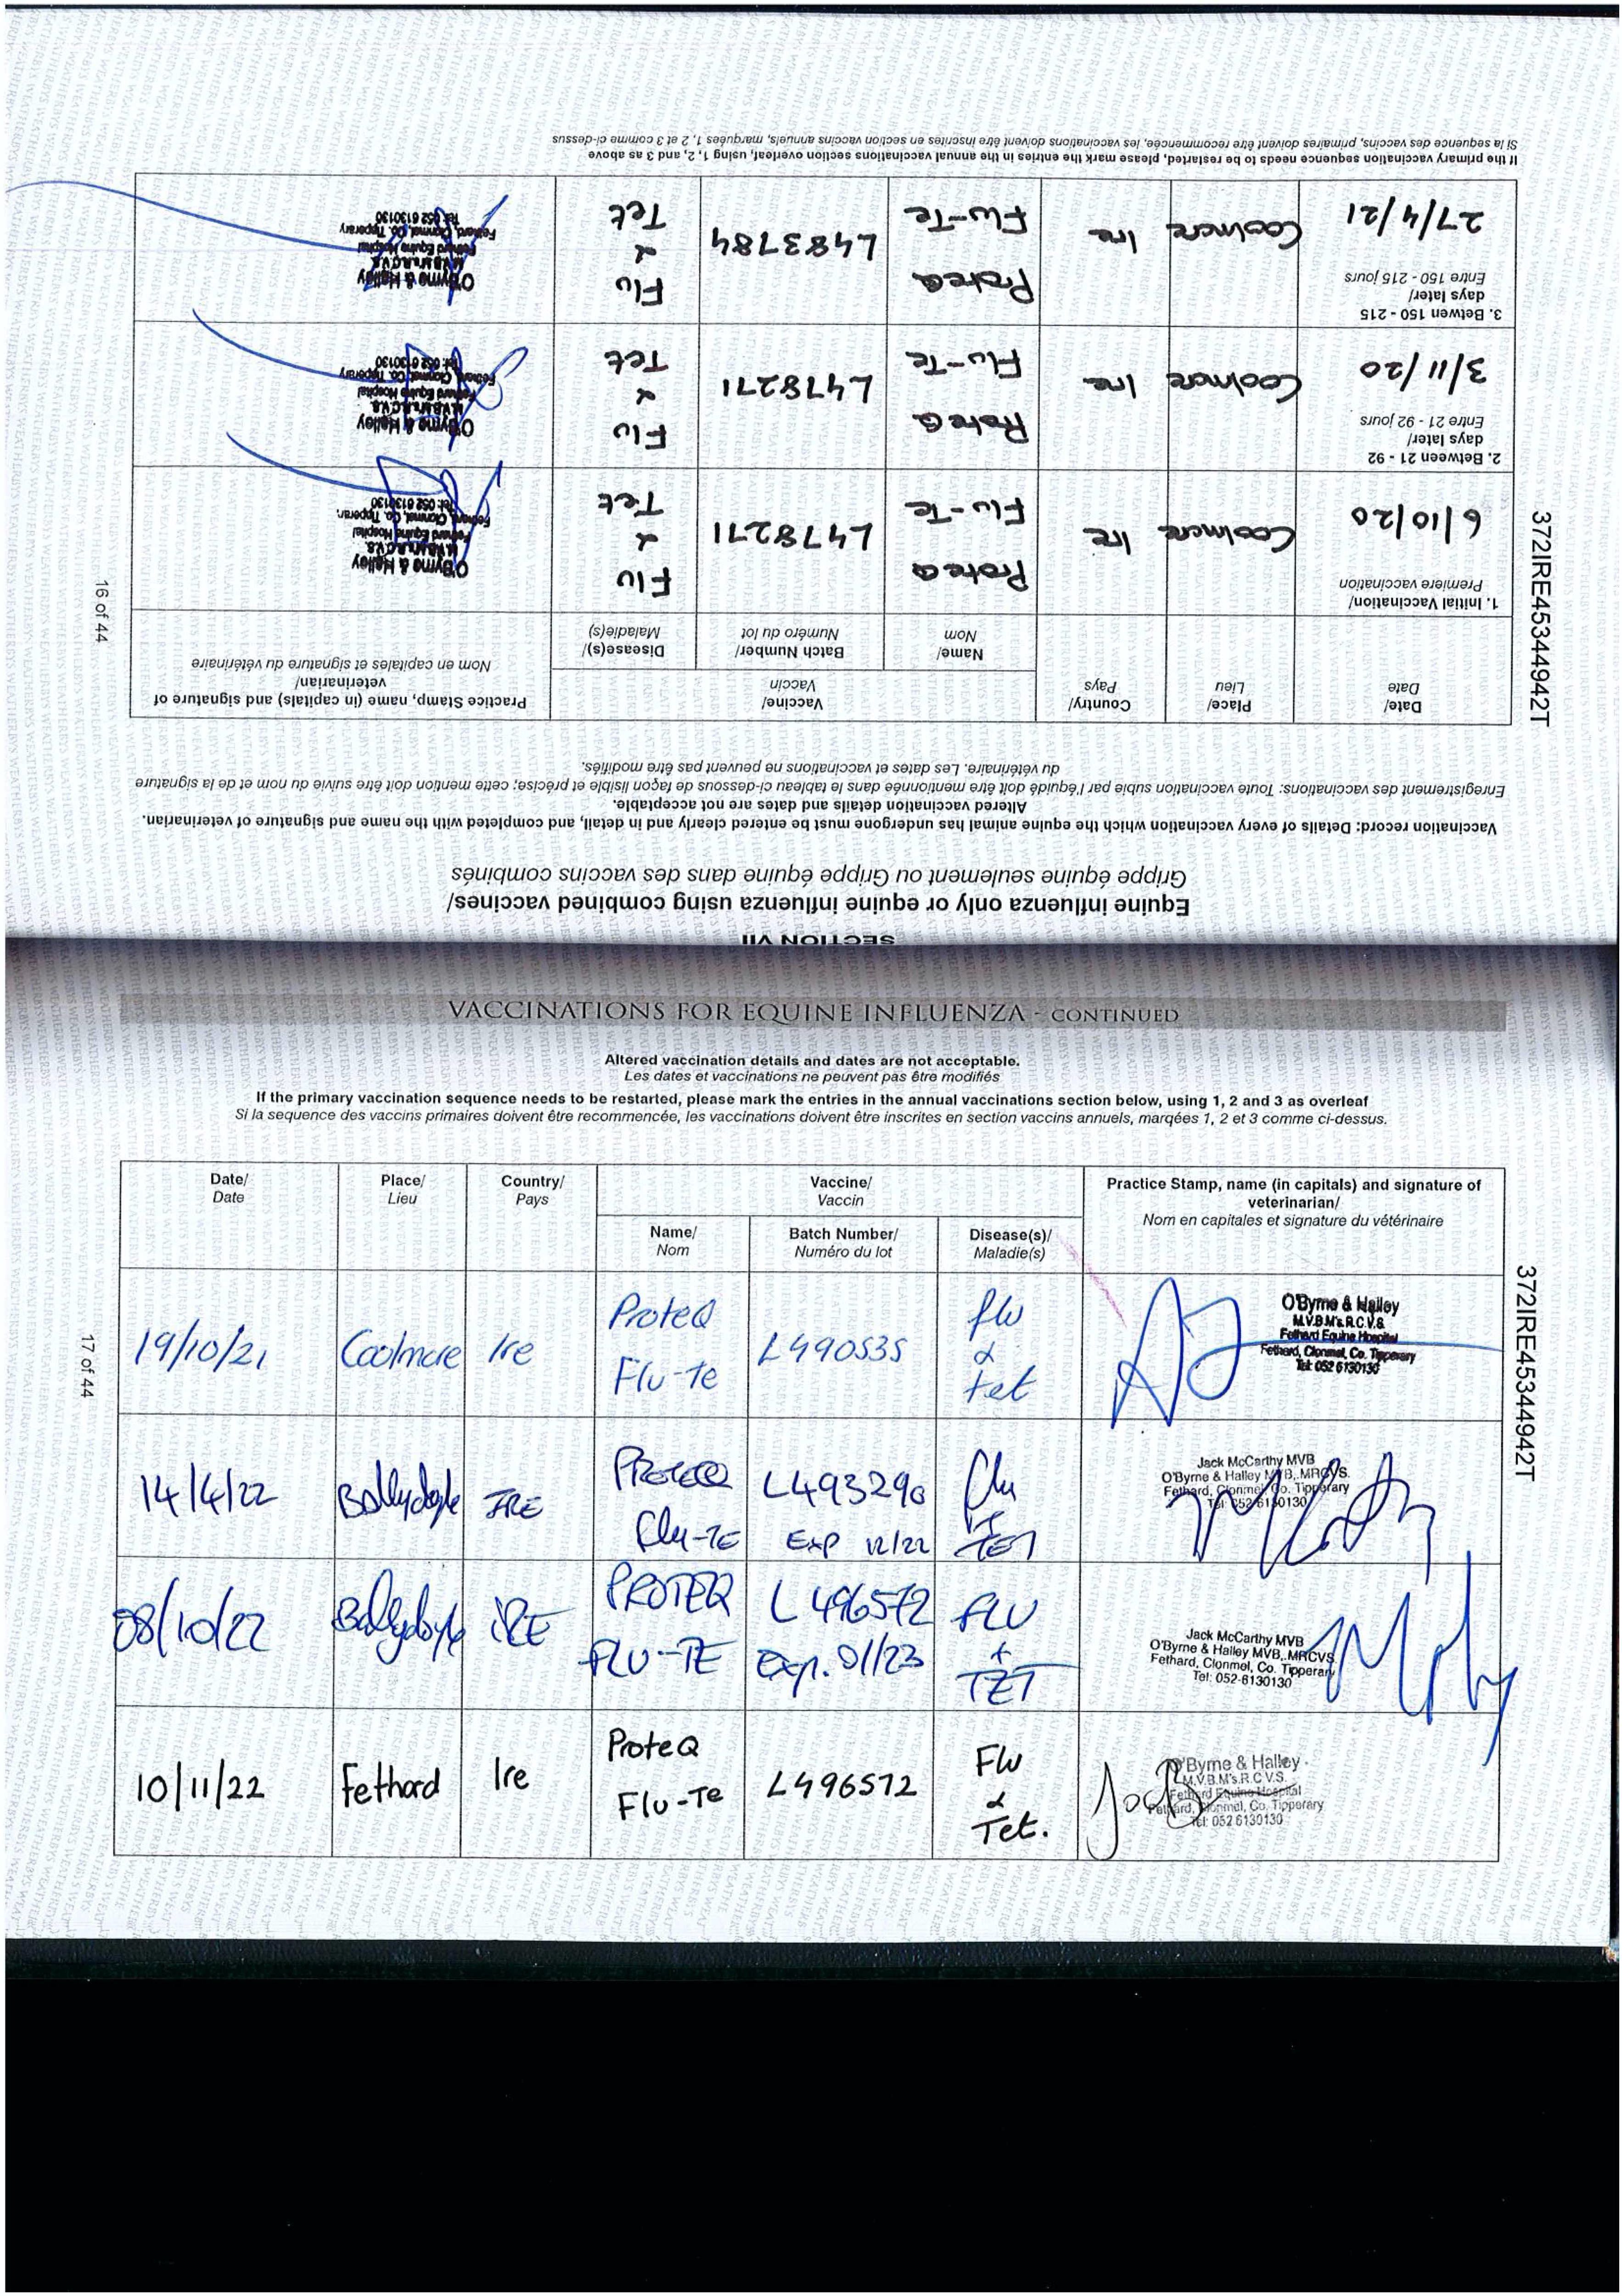 SECTION VII
Equine influenza only or equine influenza using combined vaccines/
Grippe équine seulement ou Grippe équine dans des vaccins combinés
Vaccination record: Details of every vaccination which the equine animal has undergone must be entered clearly and in detail, and completed with the name and signature of veterinarian.
Altered vaccination details and dates are not acceptable.
Enregistrement des vaccinations: Toute vaccination subie par l'équidé doit être mentionnée dans le tableau ci-dessous de façon lisible et précise; cette mention doit être suivie du nom et de la signature
du vétérinaire. Les dates et vaccinations ne peuvent pas être modifiés.
Date/
Date
Place/
Lieu
Country/
Pays
Vaccine/
Vaccin
Name/
Nom
Batch Number/
Numéro du lot
Disease(s)/
Maladie(s)
Practice Stamp, name (in capitals) and signature of
veterinarian/
Nom en capitales et signature du vétérinaire
1. Initial Vaccination/
Premiere vaccination
6/10/20
Coolmore
Ire
ProteQ
Flu-Te
L478271
Flu
&
Tet
O'Byrne & Halley
M.V.B.M's.R.C.V.S.
Fethard Equine Hospital
Fethard, Clonmel, Co. Tipperary
Tel: 052 6130130
2. Between 21 - 92
days later/
Entre 21 - 92 jours
3/11/20
Coolmore
Ire
ProteQ
Flu-Te
L478271
Flu
&
Tet
O'Byrne & Halley
M.V.B.M's.R.C.V.S.
Fethard Equine Hospital
Fethard, Clonmel, Co. Tipperary
Tel: 052 6130130
3. Betwen 150 - 215
days later/
Entre 150 - 215 jours
27/4/21
Coolmore
Ire
ProteQ
Flu-Te
L483784
Flu
&
Tet
O'Byrne & Halley
M.V.B.M's.R.C.V.S.
Fethard Equine Hospital
Fethard, Clonmel, Co. Tipperary
Tel: 052 6130130
If the primary vaccination sequence needs to be restarted, please mark the entries in the annual vaccinations section overleaf, using 1, 2, and 3 as above
Si la sequence des vaccins, primaires doivent être recommencée, les vaccinations doivent être inscrites en section vaccins annuels, marquées 1, 2 et 3 comme ci-dessus
16 of 44
372IRE45344942T
VACCINATIONS FOR EQUINE INFLUENZA - CONTINUED
Altered vaccination details and dates are not acceptable.
Les dates et vaccinations ne peuvent pas être modifiés
If the primary vaccination sequence needs to be restarted, please mark the entries in the annual vaccinations section below, using 1, 2 and 3 as overleaf
Si la sequence des vaccins primaires doivent être recommencée, les vaccinations doivent être inscrites en section vaccins annuels, marqées 1, 2 et 3 comme ci-dessus.
Date/
Date
Place/
Lieu
Country/
Pays
Vaccine/
Vaccin
Name/
Nom
Batch Number/
Numéro du lot
Disease(s)/
Maladie(s)
Practice Stamp, name (in capitals) and signature of
veterinarian/
Nom en capitales et signature du vétérinaire
19/10/21
Coolmore
Ire
ProteQ
Flu-Te
L490535
flu
&
tet
O'Byrne & Halley
M.V.B.M's.R.C.V.S.
Fethard Equine Hospital
Fethard, Clonmel, Co. Tipperary
Tel: 052 6130130
14/4/22
Ballydoyle
IRE
PROTEQ
Flu-TE
L493290
Exp 12/22
Flu
+
TET
Jack McCarthy MVB
O'Byrne & Halley MVB, MRCVS.
Fethard, Clonmel, Co. Tipperary
Tel: 052-6130130
08/10/22
Ballydoyle
IRE
PROTEQ
FLU-TE
L496572
Exp. 01/23
FLU
+
TET
Jack McCarthy MVB
O'Byrne & Halley MVB, MRCVS.
Fethard, Clonmel, Co. Tipperary
Tel: 052-6130130
10/11/22
Fethard
Ire
ProteQ
Flu-Te
L496572
Flu
&
Tet.
O'Byrne & Halley
M.V.B.M's.R.C.V.S.
Fethard Equine Hospital
Fethard, Clonmel, Co. Tipperary
Tel: 052 6130130
17 of 44
372IRE45344942T